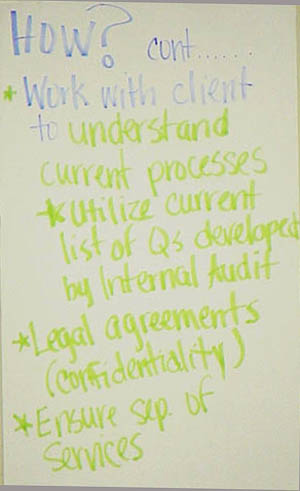 HOW? cont.......
* Work with client
to understand
current processes
* Utilize current
list of Qs developed
by Internal Audit
* Legal agreements
(confidentiality)
* Ensure sep. of
Services